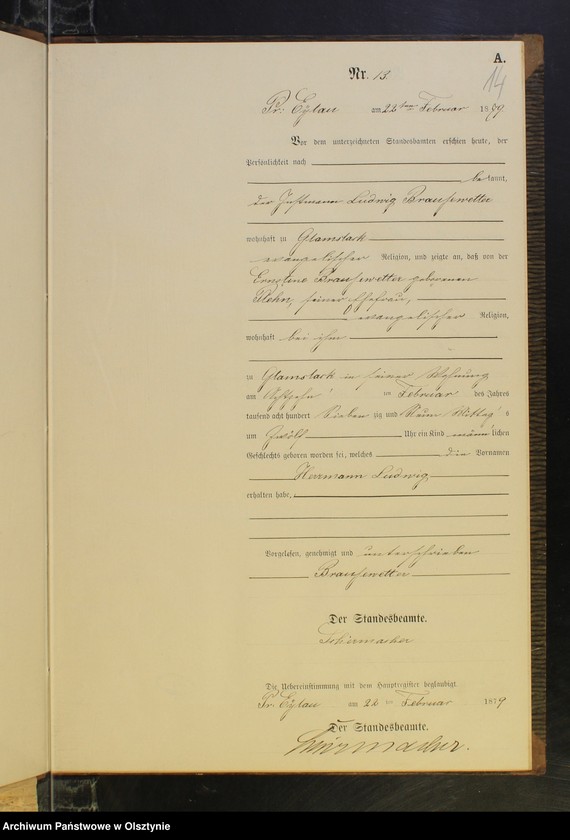 A.
14
Nr. 13.
Pr. Eylau am 22ten Februar 1879
Vor dem unterzeichneten Standesbeamten erschien heute, der
Persönlichkeit nach
bekannt,
der Ludwig Brausewetter
wohnhaft in Glamslack
evangelischer Religion, und zeigte an, daß von der
Ernstine Brausewetter geborenen
Rehn, seiner Ehefrau,
evangelischer Religion,
wohnhaft bei ihm
zu Glamslack in seiner Wohnung
am Achtzehn ten Februar des Jahres
tausend acht hundert siebenzig und Neun Mittags
um Zwölf Uhr ein Kind männlichen
Geschlechts geboren worden sei, welches die Vornamen
Herrmann Ludwig
erhalten habe,
Vorgelesen, genehmigt und unterschrieben
Brausewetter
Der Standesbeamte.
Schirmacher
Die Uebereinstimmung mit dem Hauptregister beglaubigt
Pr. Eylau am 22 ten Februar 1879
Der Standesbeamte.
Schirmacher.
Archiwum Państwowe w Olsztynie